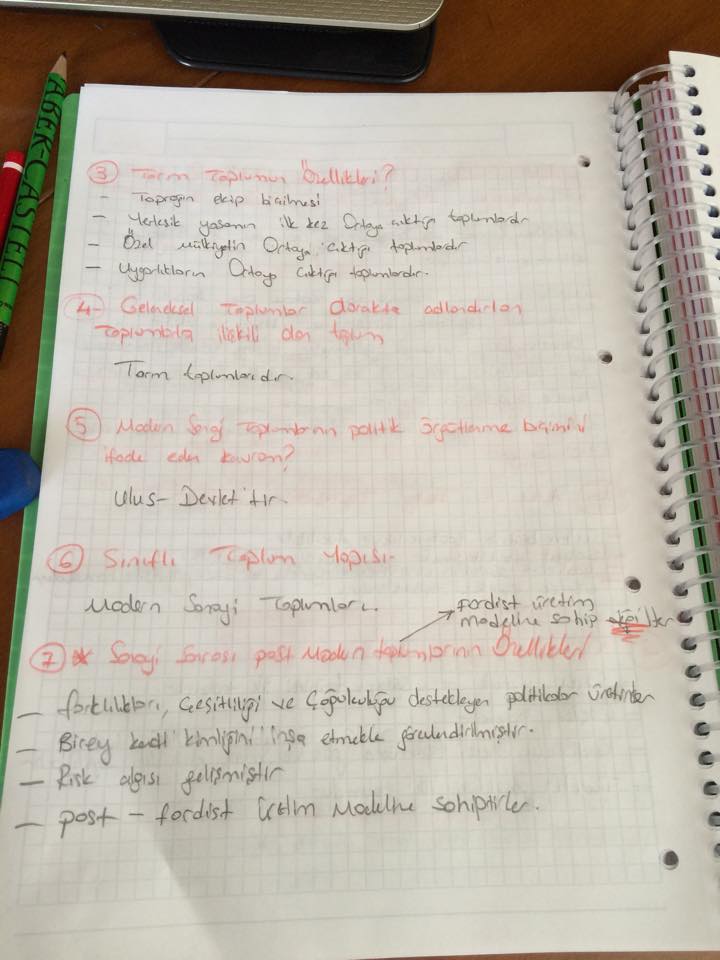 ABER-CASTELL
③ Tarım Toplumun Özellikleri?
- Toprağın ekip biçilmesi
- Yerleşik yaşamın ilk kez Ortaya çıktığı toplumlardır
- Özel mülkiyetin Ortaya çıktığı toplumlardır
- Uygarlıkların Ortaya çıktığı toplumlardır.
④- Geleneksel Toplumlar olarakta adlandırılan
toplumlarla ilişkili olan toplum
Tarım toplumlarıdır.
⑤ Modern Sanayi Toplumlarının politik örgütlenme biçimini
ifade eden kavram?
Ulus-Devlet'tir.
⑥ Sınıflı Toplum Yapısı-
Modern Sanayi Toplumları.
fordist üretim
modeline sahip değiller
⑦ * Sanayi Sonrası post Modern toplumlarının Özellikleri
- farklılıkları, Çeşitliliği ve Çoğulculuğu destekleyen politikalar üretirler
- Birey kendi kimliğini inşa etmekle görevlendirilmiştir.
- Risk algısı gelişmiştir
- post - fordist Üretim Modeline sahiptirler.